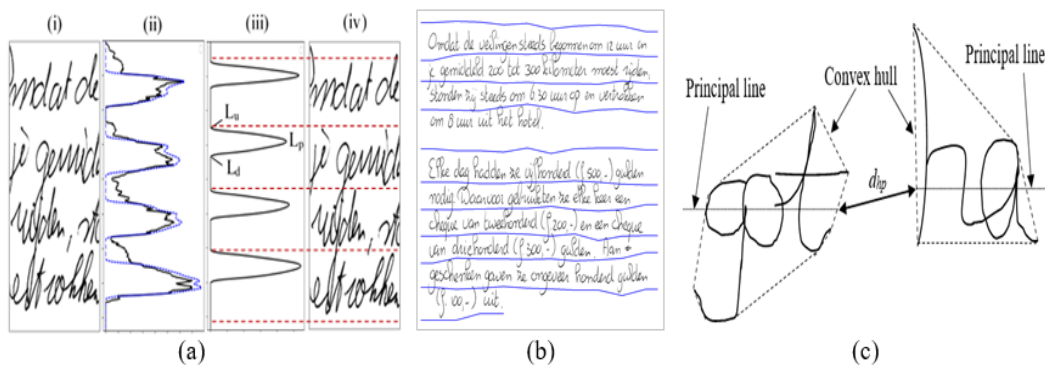 (i) (ii) (iii) (iv)
mdat de
gemid
L_u
L_p
L_d
mdat de
gemid
(a)
Omdat de veilingen steeds begonnen om 12 uur en
je gemiddeld 200 tot 300 kilometer moest rijden,
stonden zij steeds om 6.30 uur op en vertrokken
om 8 uur uit het hotel.
Elke dag hadden ze vijfhonderd (f 500,-) gulden
nodig. Waarvoor gebruikten ze elke keer een
cheque van tweehonderd (f 200,-) en een cheque
van driehonderd (f 300,-) gulden. Aan
geschenken gaven ze ongeveer honderd gulden
(f. 100,-) uit.
(b)
Principal line
Convex hull
Principal line
d_hp
(c)